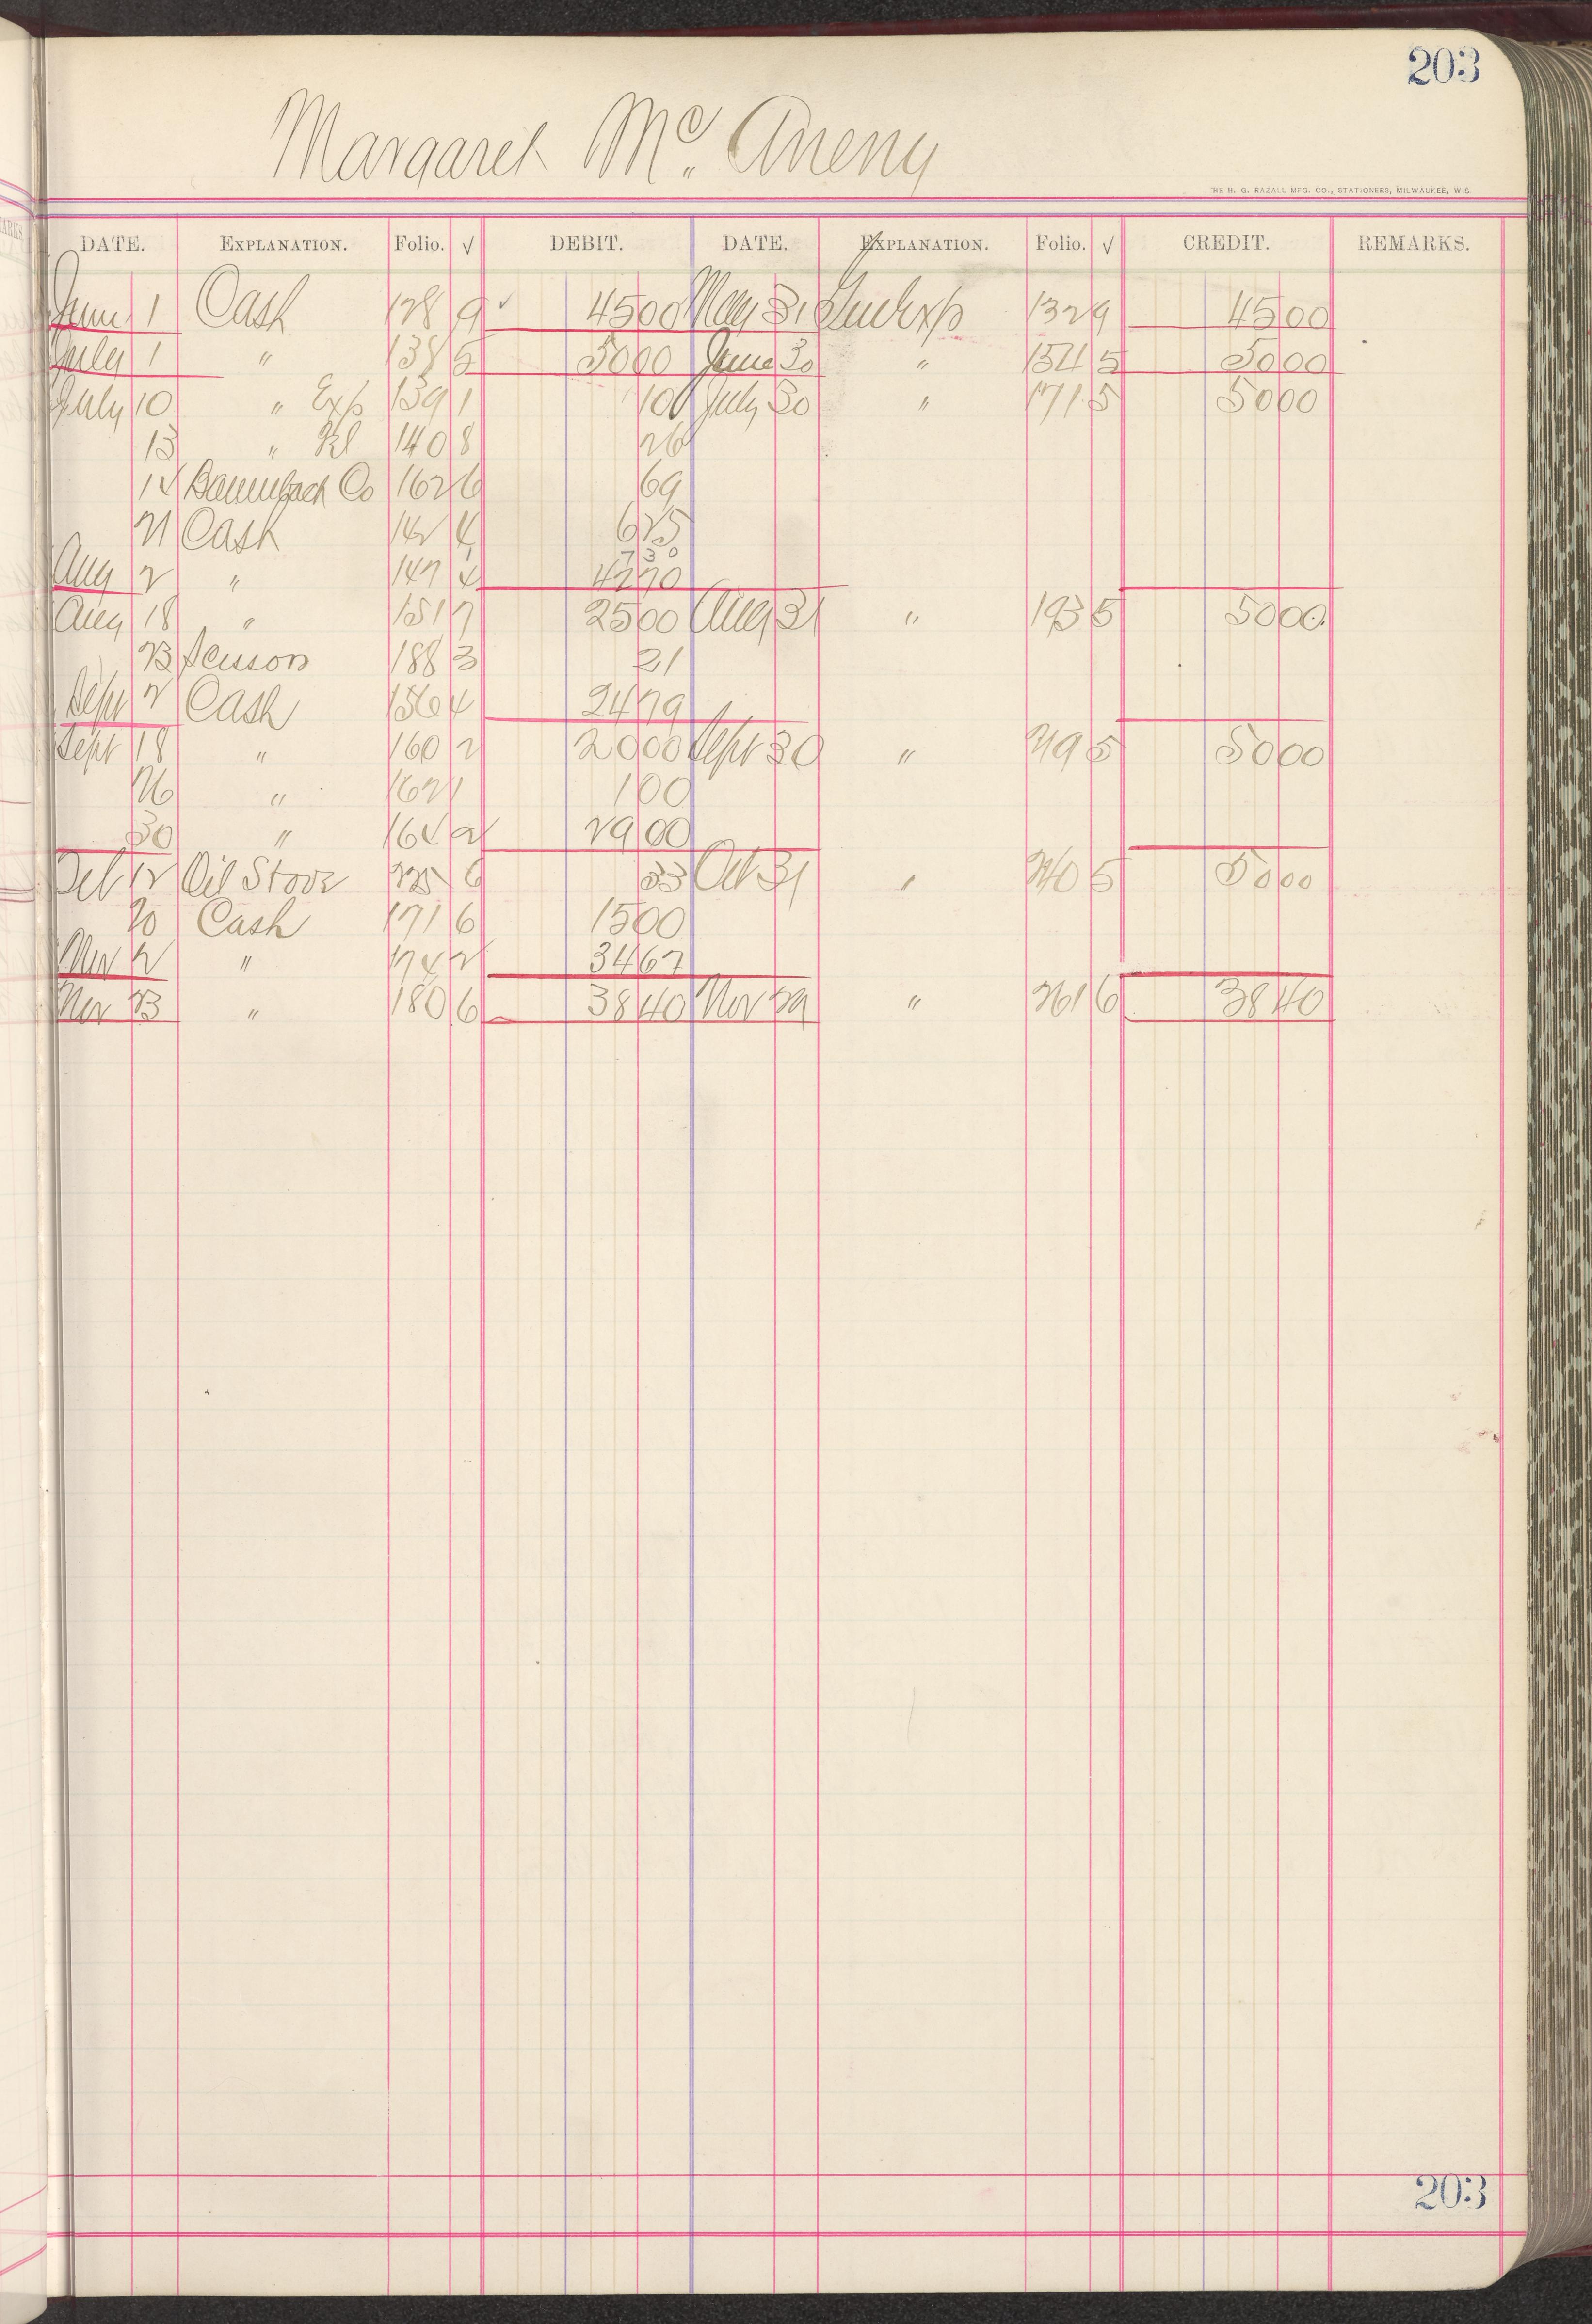 203
Margaret Mc. Aneny
THE H. G. RAZALL MFG. CO., STATIONERS, MILWAUKEE, WIS.
DATE. EXPLANATION. Folio. √ DEBIT. DATE. EXPLANATION. Folio. √ CREDIT. REMARKS.
June 1 Cash 128 9 √ 4500 May 31 Exp 132 9 4500
July 1 " 138 5 5000 June 30 " 154 5 5000
July 10 " Exp 139 1 100 July 30 " 171 5 5000
13 " 140 8 26
14 Co 162 6 69
21 Cash 142 4 625
730
Aug 2 " 147 4 4270
Aug 18 " 151 7 2500 Aug 31 " 193 5 5000
23 Scissors 188 3 21
Sept 2 Cash 156 4 2479
Sept 18 " 160 2 2000 Sept 30 " 219 5 5000
26 " 162 1 100
30 " 164 2 2900
Oct 12 Oil Stove 225 6 33 Oct 31 " 240 5 5000
20 Cash 171 6 1500
Nov 2 " 174 2 3467
Nov 23 " 180 6 3840 Nov 29 " 261 6 3840
203